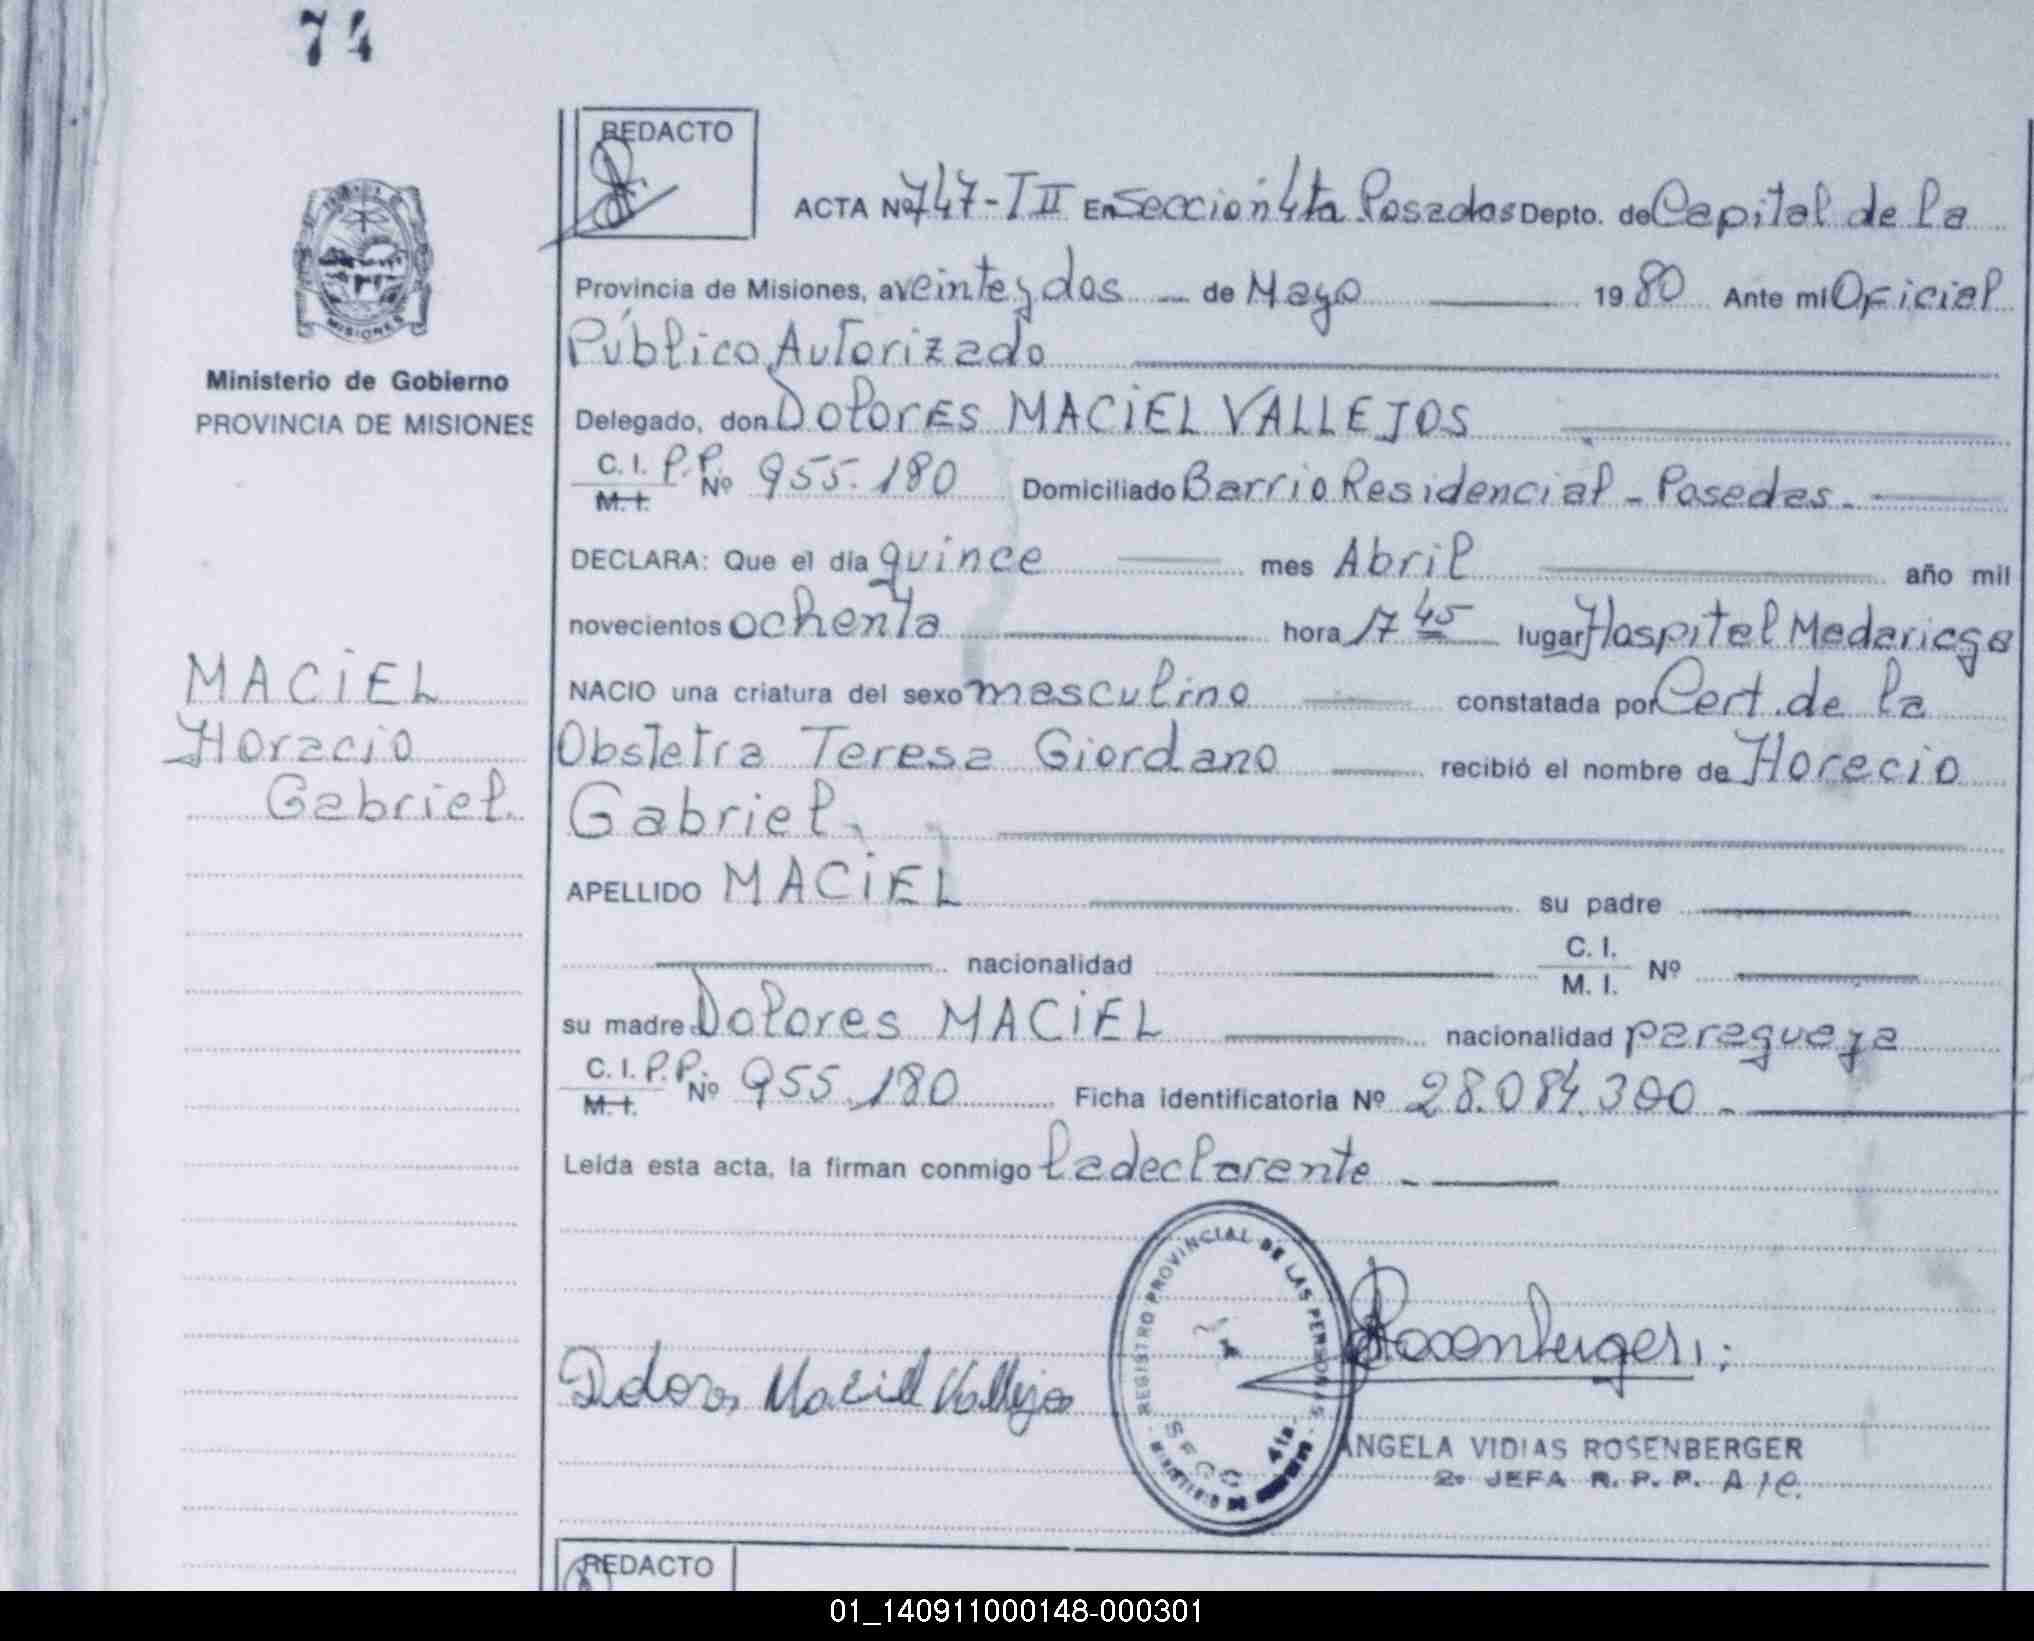 74
REDACTO
ACTA Nº 747-T II En Sección 4ta Posadas Depto. de Capital de la
Provincia de Misiones, a veinte y dos de Mayo 1980 Ante mi Oficial
Público Autorizado
MISIONES
Ministerio de Gobierno
PROVINCIA DE MISIONES
Delegado, don Dolores MACiEL VALLEJOS
C. I. P.P. Nº 955.180 Domiciliado Barrio Residencial - Posadas.
M. I.
DECLARA: Que el día quince mes Abril año mil
novecientos ochenta hora 17 45 lugar Hospital Madariaga
MACiEL
Horacio
Gabriel.
NACIO una criatura del sexo masculino constatada por Cert. de la
Obstetra Teresa Giordano recibió el nombre de Horacio
Gabriel.
APELLIDO MACiEL su padre
nacionalidad C. I. Nº
M. I.
su madre Dolores MACiEL nacionalidad paraguaya
C. I. P.P. Nº 955.180 Ficha identificatoria Nº 28.084.300
M. I.
Leída esta acta, la firman conmigo la declarante
REGISTRO PROVINCIAL DE LAS PERSONAS
SECC 4ta
MINISTERIO DE GOBIERNO
Dolores Maciel Vallejos
Rosenberger
ANGELA VIDIAS ROSENBERGER
2º JEFA R. P. P. A/C.
REDACTO
01_140911000148-000301